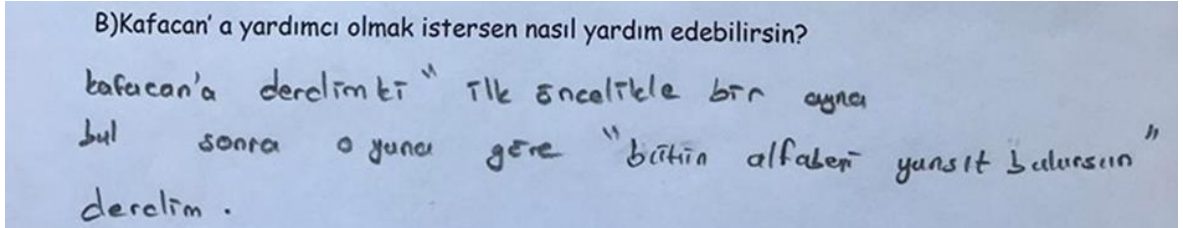 B)Kafacan' a yardımcı olmak istersen nasıl yardım edebilirsin?
kafacan'a derdim ki " ilk öncelikle bir ayna
bul sonra o yuna göre "bütün alfabeyi yansıt bulursun"
derdim .